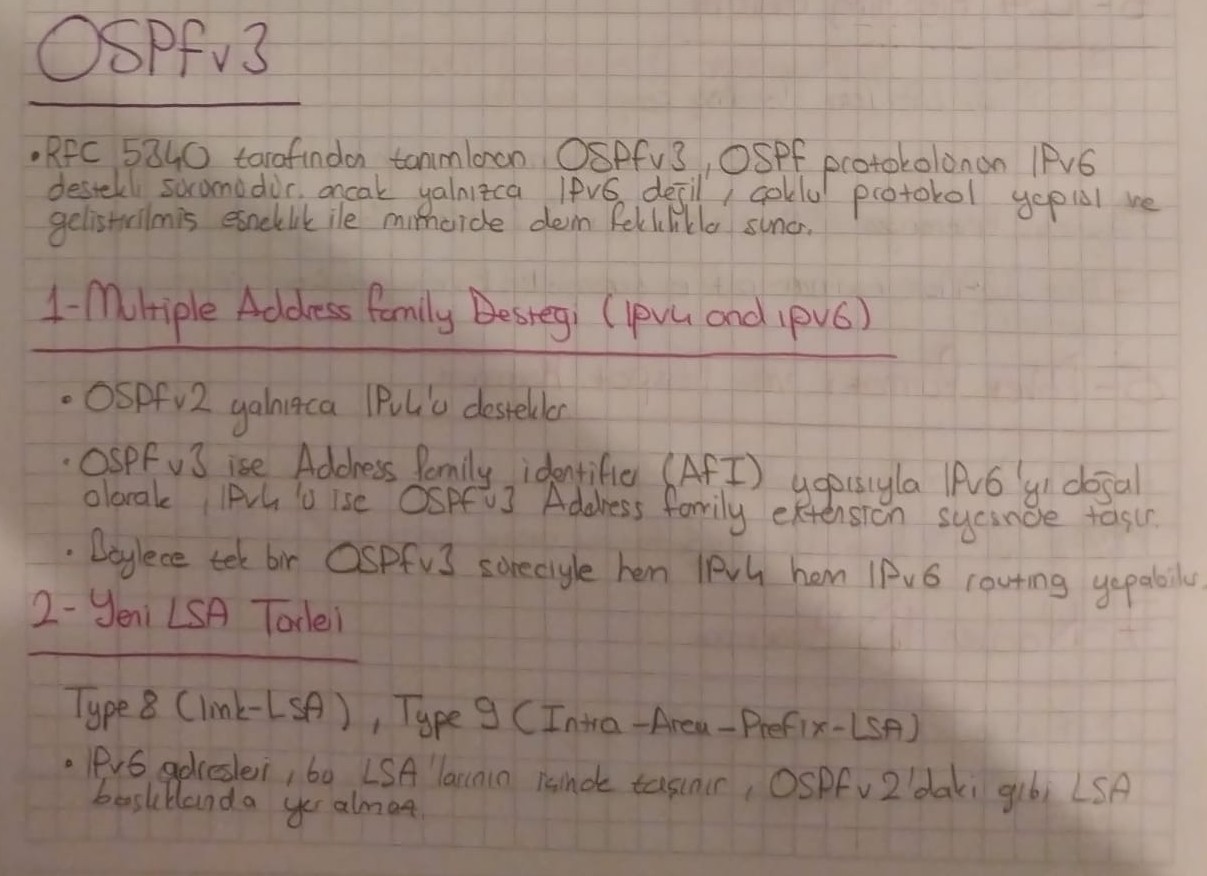 OSPFv3
• RFC 5340 tarafından tanımlanan OSPFv3, OSPF protokolünün IPv6
destekli sürümüdür. ancak yalnızca IPv6 değil, çoklu protokol yapısı ve
geliştirilmiş esneklik ile mimaride derin farklılıkla sunar.
1-Multiple Address family Desteği (IPv4 and ipv6)
• OSPFv2 yalnızca IPv4'ü destekler
• OSPFv3 ise Address family identifier (AFI) yapısıyla IPv6'yı doğal
olarak, IPv4'ü ise OSPFv3 Address family extension sayesinde taşır.
• Böylece tek bir OSPFv3 süreciyle hem IPv4 hem IPv6 routing yapabilir.
2- Yeni LSA Türleri
Type 8 (link-LSA), Type 9 (Intra-Area-Prefix-LSA)
• IPv6 adresleri, bu LSA'larının içinde taşınır, OSPFv2'daki gibi LSA
başlıklarında yer almaz.